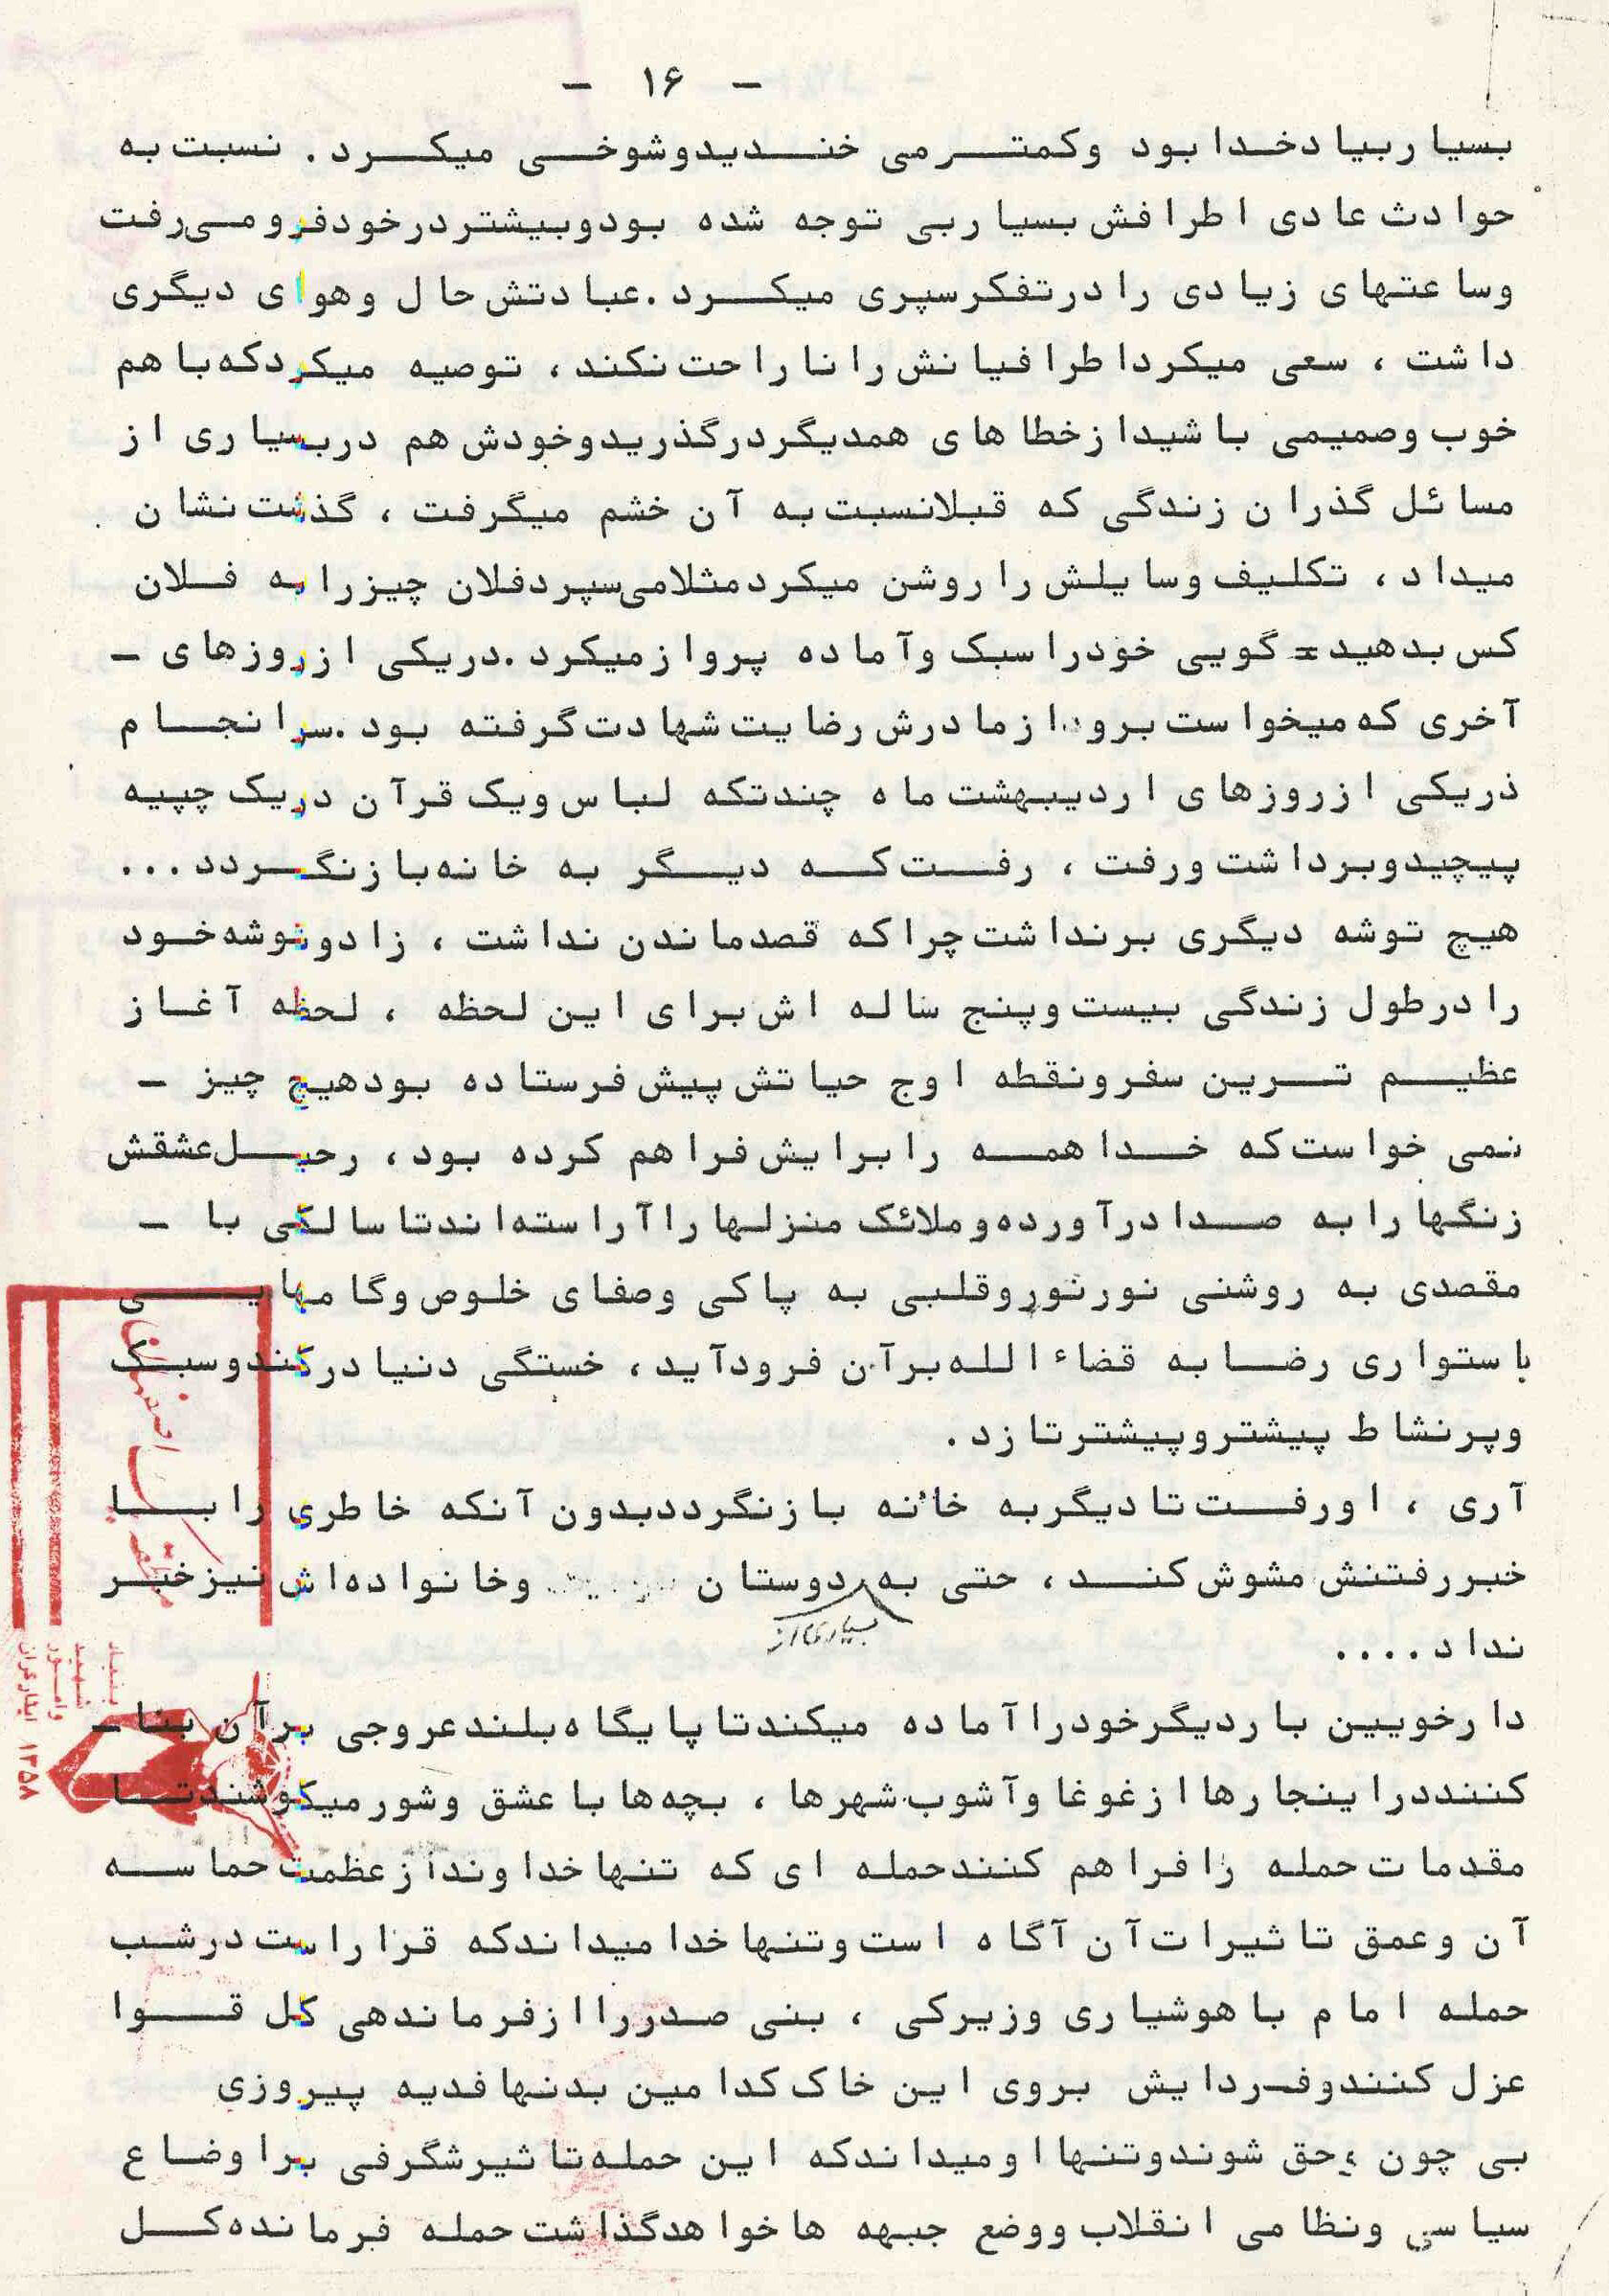 - ۱۶ -
بسیار بیاد خدا بود وکمتر می خندید و شوخی میکرد. نسبت به
حوادث عادی اطرافش بسیار بی توجه شده بود و بیشتر در خود فرو می‌رفت
وساعتهای زیادی را در تفکر سپری میکرد. عبادتش حال وهوای دیگری
داشت ، سعی میکرد اطرافیانش را ناراحت نکند، توصیه میکرد که با هم
خوب وصمیمی باشید از خطاهای همدیگر درگذرید و خودش هم در بسیاری از
مسائل گذران زندگی که قبلا نسبت به آن خشم میگرفت ، گذشت نشان
میداد، تکلیف وسایلش را روشن میکرد مثلا می‌سپرد فلان چیز را به فلان
کس بدهید = گویی خود را سبک وآماده پرواز میکرد. در یکی از روزهای -
آخری که میخواست برود از مادرش رضایت شهادت گرفته بود. سرانجام
ذر یکی از روزهای اردیبهشت ماه چند تکه لباس ویک قرآن در یک چپیه
پیچید و برداشت ورفت ، رفت که دیگر به خانه باز نگردد ...
هیچ توشه دیگری برنداشت چرا که قصد ماندن نداشت ، زاد و توشه خود
را در طول زندگی بیست وپنج ساله اش برای این لحظه ، لحظه آغاز
عظیم ترین سفر و نقطه اوج حیاتش پیش فرستاده بود هیچ چیز -
نمی خواست که خدا همه را برایش فراهم کرده بود، رحیل عشقش
زنگها را به صدا درآورده و ملائک منزلها را آراسته‌اند تا سالکی با -
مقصدی به روشنی نور نور و قلبی به پاکی وصفای خلوص وگامهایی
باستواری رضا به قضاء الله برآن فرودآید، خستگی دنیا در کند و سبک
وپرنشاط پیشتر و پیشتر تازد.
آری ، او رفت تا دیگر به خانه باز نگردد بدون آنکه خاطری را با
خبر رفتنش مشوش کند، حتی به بسیاری از دوستان وخانواده‌اش نیز خبر
نداد....
دارخویین بار دیگر خود را آماده میکند تا پایگاه بلند عروجی برآن بنا -
کنند در اینجا رها از غوغا وآشوب شهرها ، بچه‌ها با عشق وشور میکوشند تا
مقدمات حمله را فراهم کنند حمله ای که تنها خداوند از عظمت حماسه
آن وعمق تاثیرات آن آگاه است و تنها خدا میداند که قرار است در شب
حمله امام با هوشیاری وزیرکی ، بنی صدر را از فرماندهی کل قوا
عزل کنند و فردایش بروی این خاک کدامین بدنها فدیه پیروزی
بی چون حق شوند و تنها او میداند که این حمله تاثیر شگرفی بر اوضاع
سیاسی ونظامی انقلاب ووضع جبهه ها خواهد گذاشت حمله فرمانده کل
بنیاد
شهید
وامور
ایثارگران
۱۳۵۸